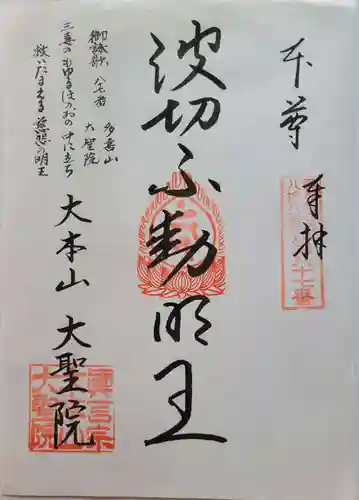 本尊
奉拝
波切不動明王
御詠歌 八七番 多喜山
大聖院
三毒の もゆるほのおの 中に立ち
救いたまえる 慈悲の明王
大本山 大聖院
真言宗
大聖院